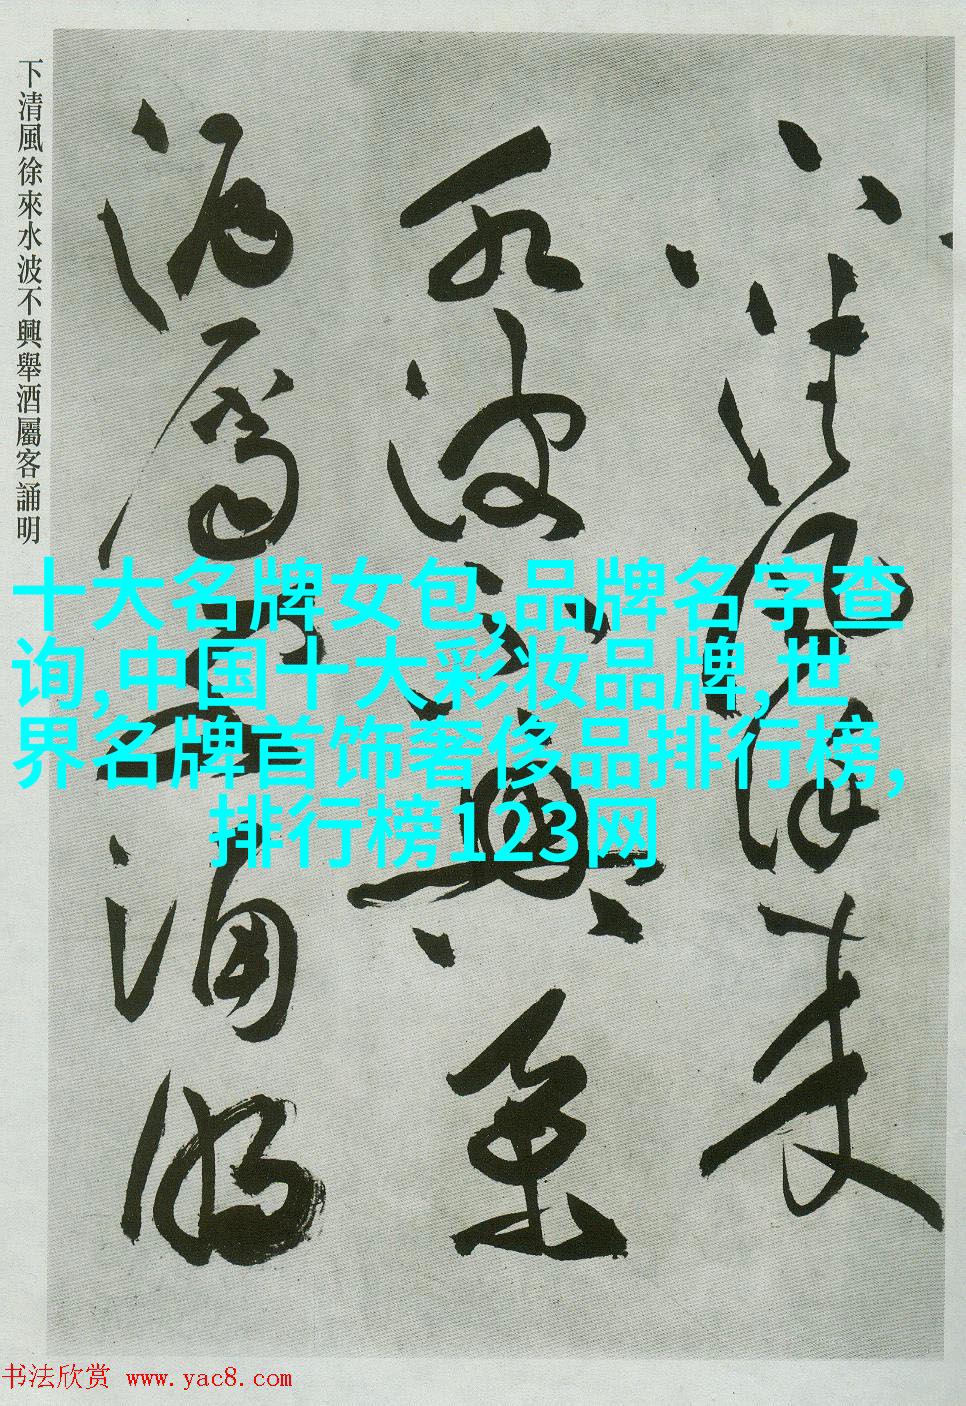 下清風徐來水波不興舉酒屬客誦明
下清風徐來
水波不興舉
酒屬客誦明
十大名牌女包,品牌名字查
询,中国十大彩妆品牌,世
界名牌首饰奢侈品排行榜,
排行榜123网
书法欣赏 www.yac8.com